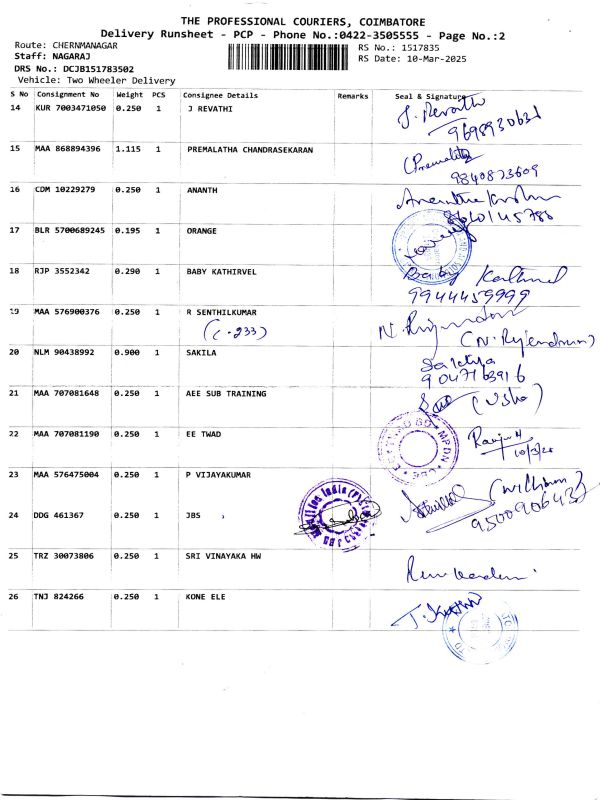 THE PROFESSIONAL COURIERS, COIMBATORE
Delivery Runsheet - PCP - Phone No.:0422-3505555 - Page No.:2
Route: CHERNMANAGAR
RS No.: 1517835
Staff: NAGARAJ
RS Date: 10-Mar-2025
DRS No.: DCJB151783502
Vehicle: Two Wheeler Delivery
S No Consignment No Weight PCS Consignee Details Remarks Seal & Signature
14 KUR 7003471050 0.250 1 J REVATHI J. Revathi
15 MAA 868894396 1.115 1 PREMALATHA CHANDRASEKARAN (Premalatha
9840873609
16 CDM 10229279 0.250 1 ANANTH
17 BLR 5700689245 0.195 1 ORANGE
18 RJP 3552342 0.290 1 BABY KATHIRVEL Baby
9944459999
19 MAA 576900376 0.250 1 R SENTHILKUMAR
(C-233) (N. Rajendran)
20 NLM 90438992 0.900 1 SAKILA
9047163916
21 MAA 707081648 0.250 1 AEE SUB TRAINING (Usha)
22 MAA 707081190 0.250 1 EE TWAD
23 MAA 576475004 0.250 1 P VIJAYAKUMAR
24 DDG 461367 0.250 1 JBS
25 TRZ 30073806 0.250 1 SRI VINAYAKA HW
26 TNJ 824266 0.250 1 KONE ELE